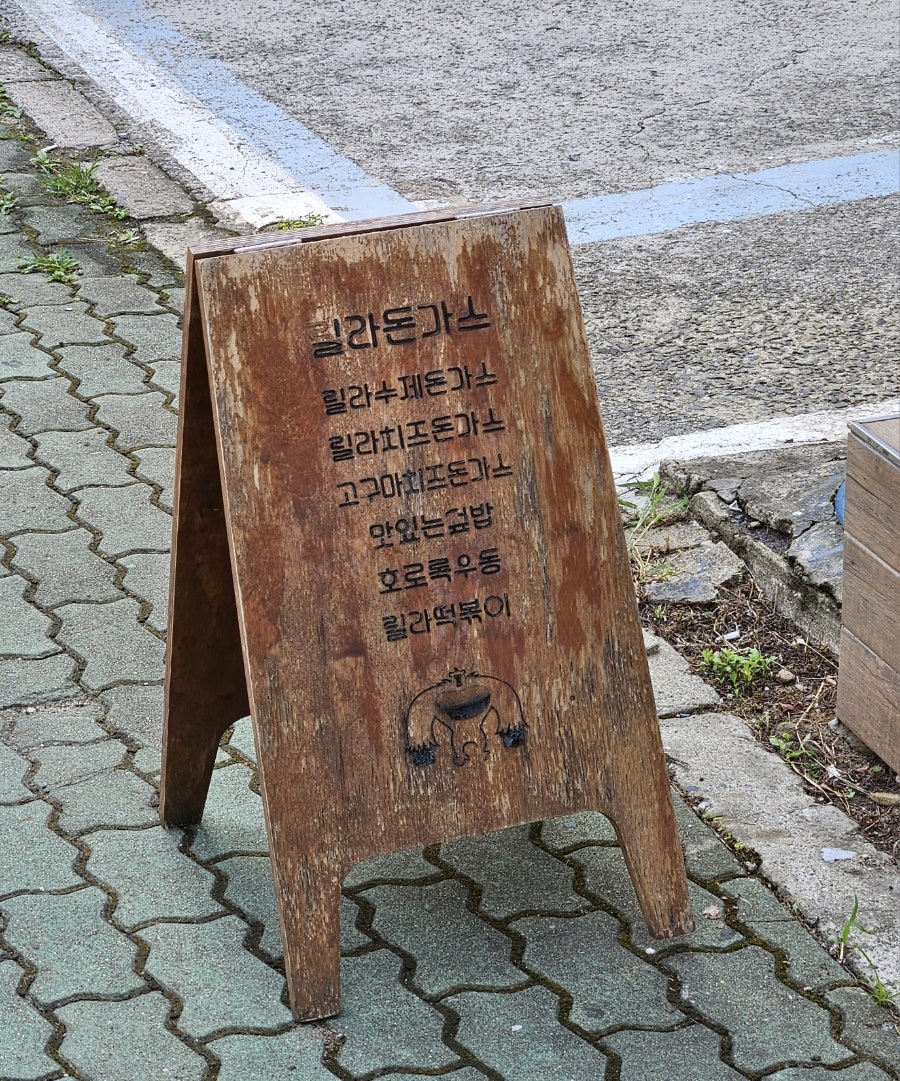 릴라돈가스
릴라수제돈가스
릴라치즈돈가스
고구마치즈돈가스
맛있는덮밥
호로록우동
릴라떡볶이